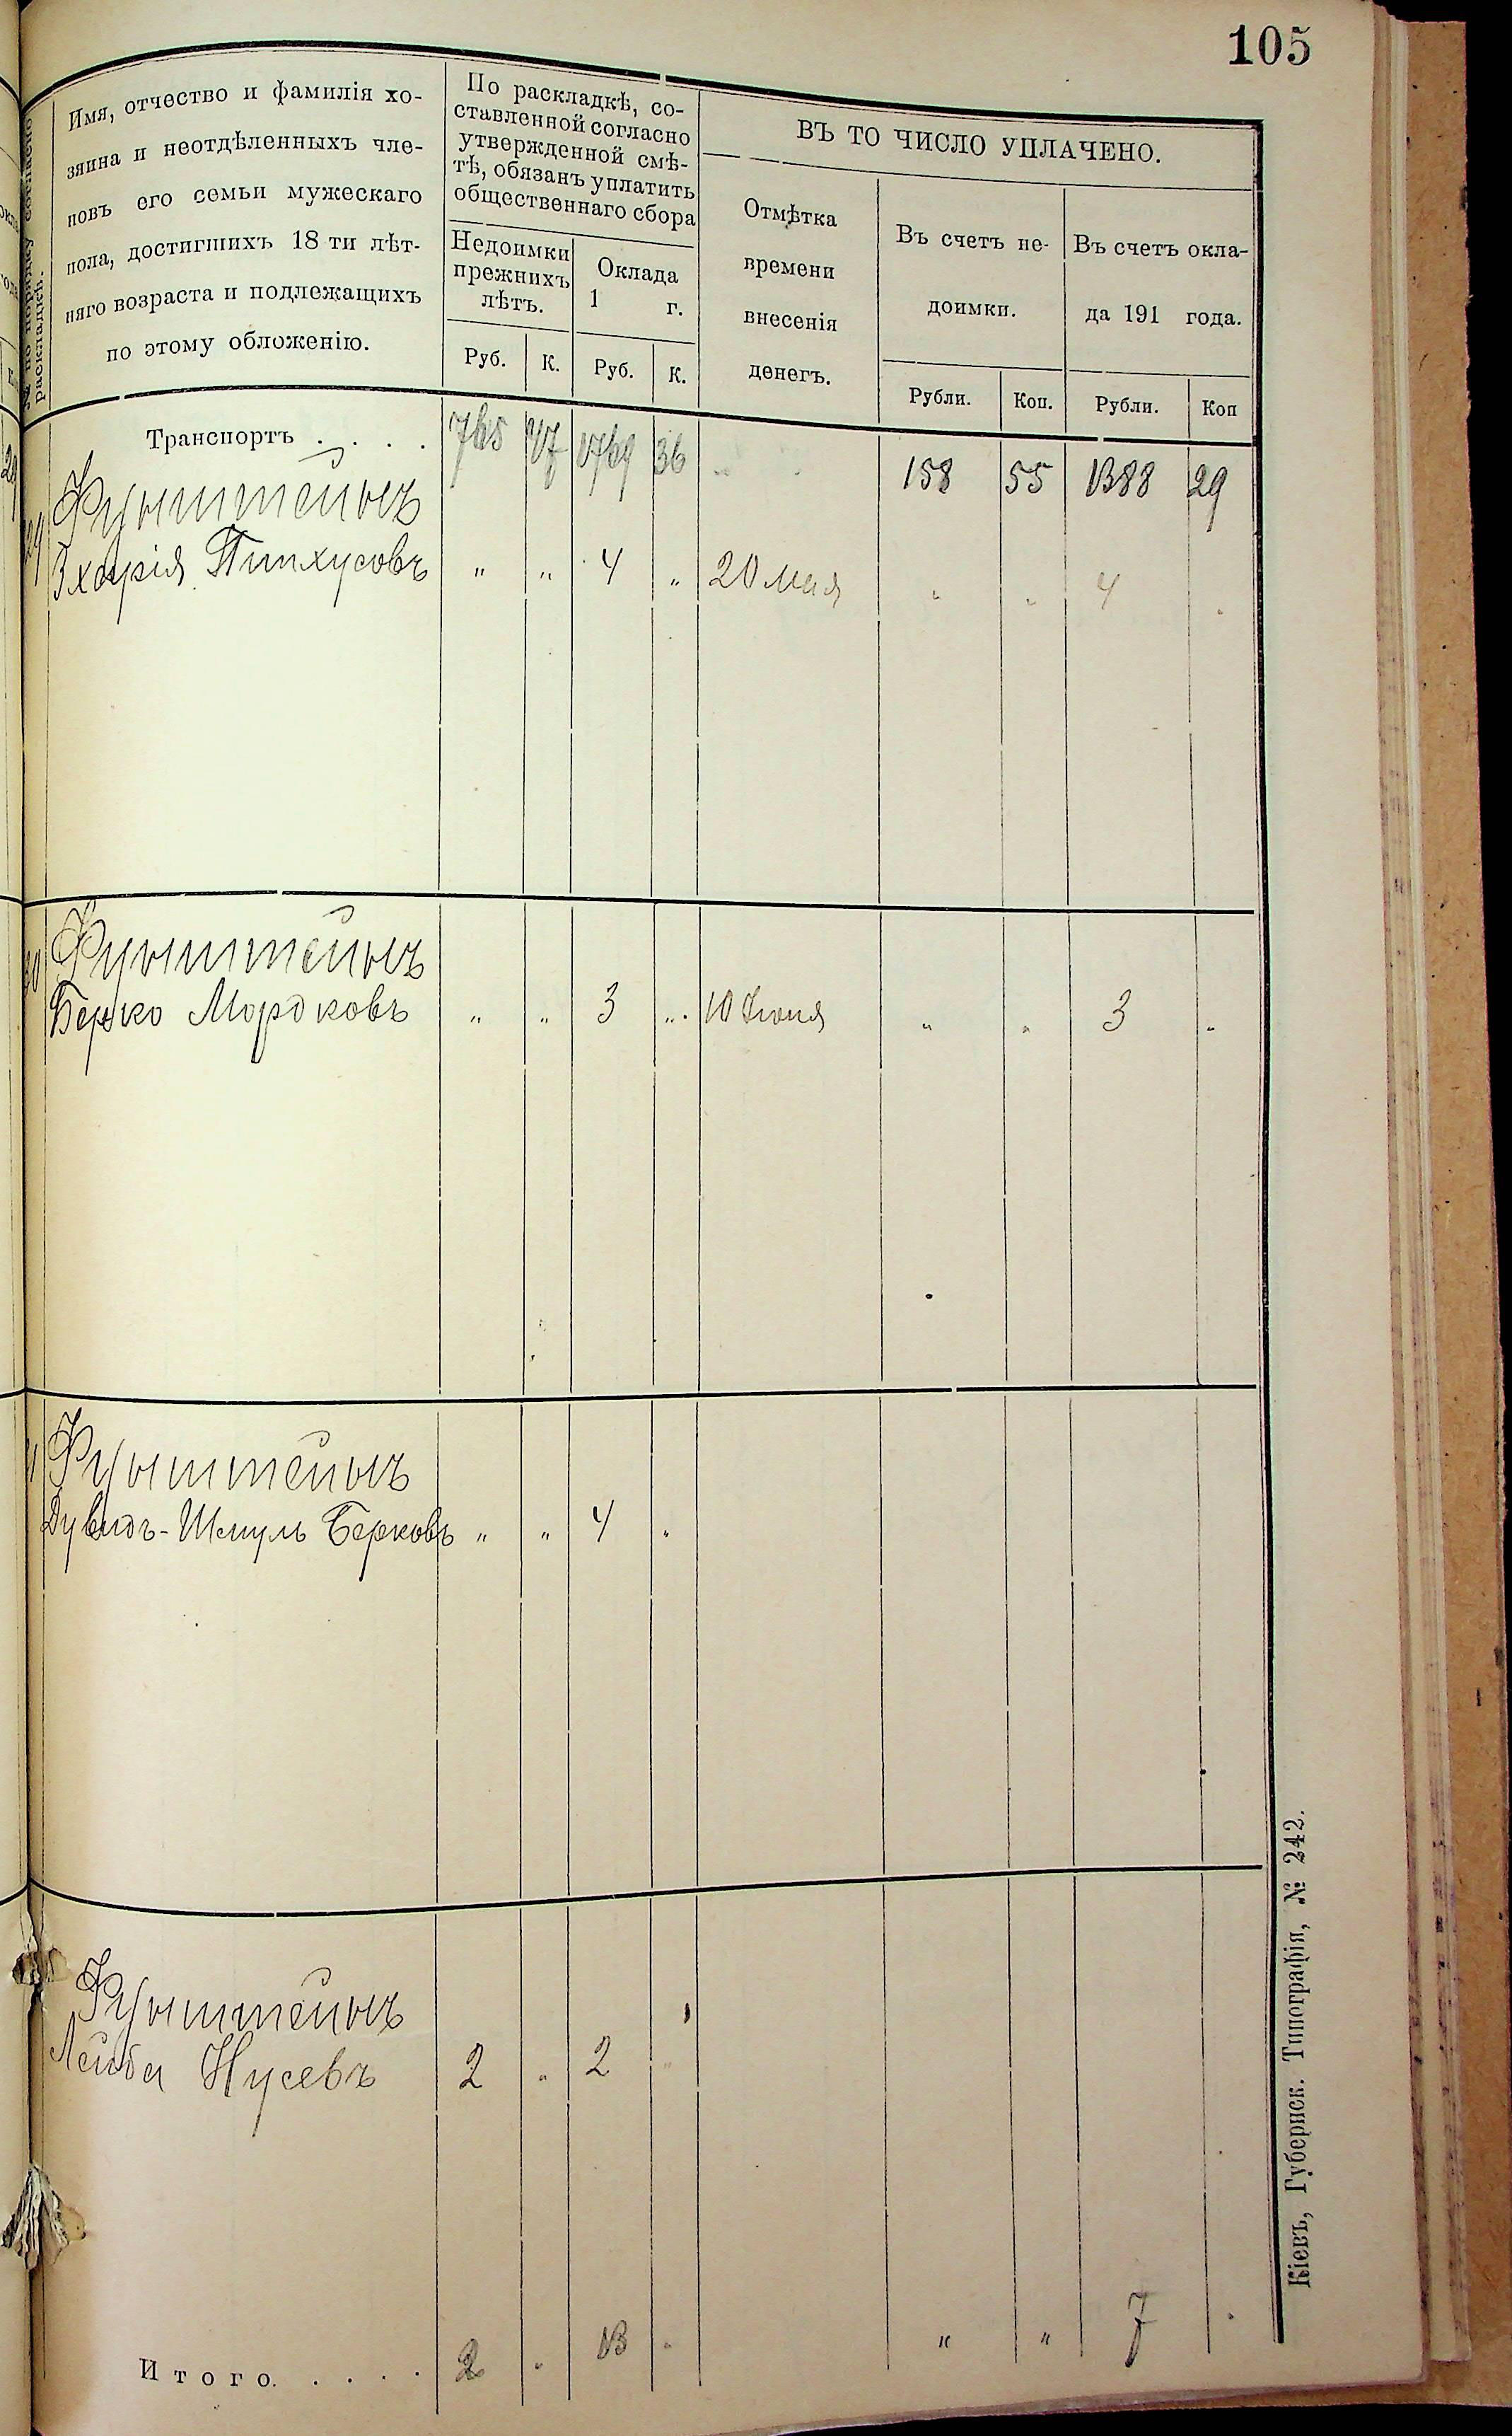 105
Имя, отчество и фамилія хо-
зяина и неотдѣленныхъ чле-
новъ его семьи мужескаго
пола, достигшихъ 18 ти лѣт-
няго возраста и подлежащихъ
по этому обложенію.
По раскладкѣ, со-
ставленной согласно
утвержденной смѣ-
тѣ, обязанъ уплатить
общественнаго сбора
Недоимки
прежнихъ
лѣтъ.
Оклада
1 г.
Руб. К. Руб. К.
ВЪ ТО ЧИСЛО УПЛАЧЕНО.
Отмѣтка
времени
внесенія
денегъ.
Въ счетъ не-
доимки.
Въ счетъ окла-
да 191 года.
Рубли. Коп. Рубли. Коп
Транспортъ . . . . 765 47 1769 36 158 55 1388 29
Фунштейнъ
Зхарія Пинхусовъ " " 4 " 20 мая " " 4 "
Фунштейнъ
Берко Мордковъ " " 3 " 10 Іюня " " 3 "
Фунштейнъ
Дувидъ-Шмуль Берковъ " " 4 "
Фунштейнъ
Лейба Нусевъ 2 " 2 "
Итого. . . . . 2 " 13 " " " 7 "
Кіевъ, Губернск. Типографія, № 242.